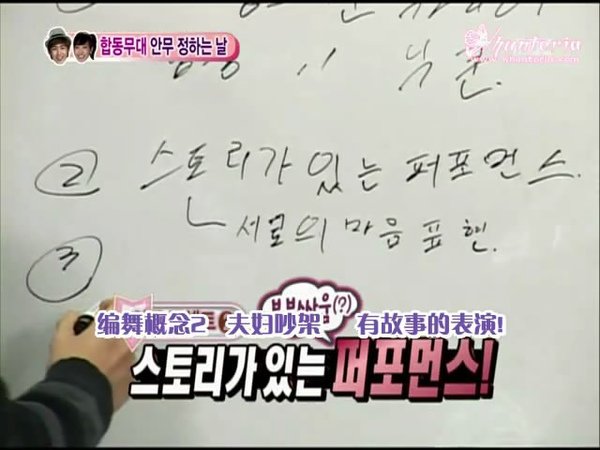 합동무대 안무 정하는 날
Whuntoria
www.whuntoria.com
② 스토리가 있는 퍼포먼스.
서로의 마음 표현.
③
부부싸움(?)
编舞概念2 夫妇吵架 有故事的表演!
스토리가 있는 퍼포먼스!